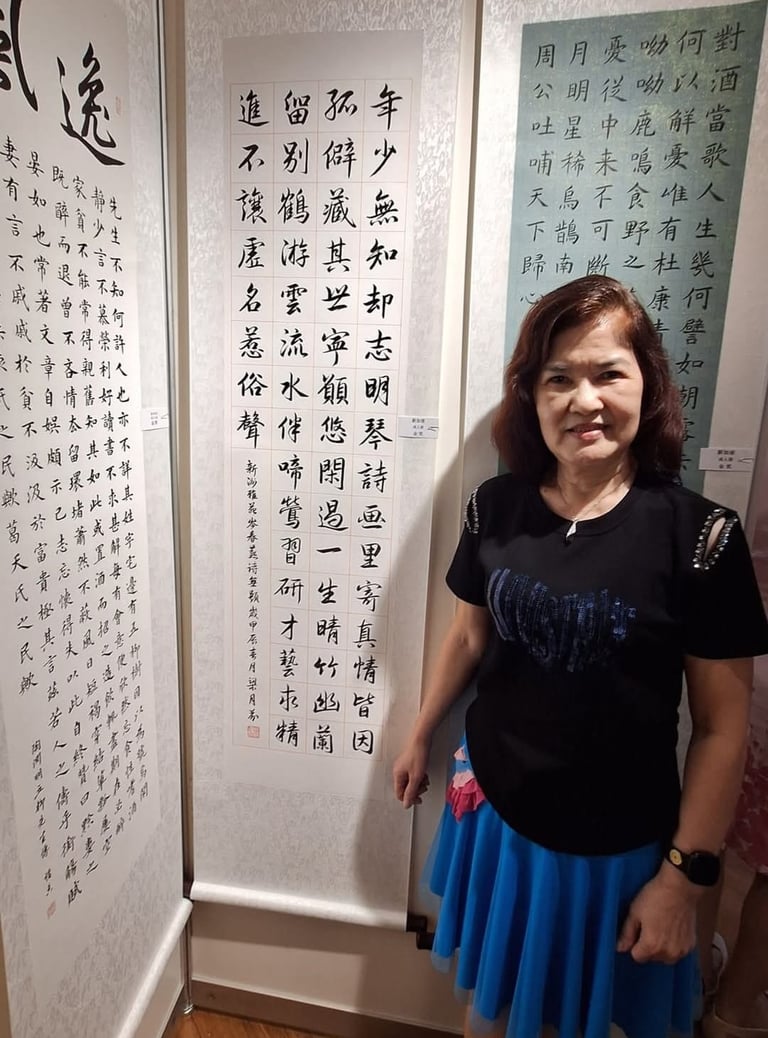 對酒當歌人生幾何譬如朝露去
何以解憂唯有杜康青
呦呦鹿鳴食野之
憂從中来不可斷
月明星稀烏鵲南
周公吐哺天下歸心
年少無知却志明琴詩画里寄真情皆因
孤僻藏其世寧願悠閑過一生晴竹幽蘭
留别鶴游雲流水伴啼鶯習研才藝求精
進不讓虛名惹俗聲
歲甲辰春月梁月芬
逸
先生不知何許人也亦不詳其姓字宅邊有五柳樹因以為號焉閑
靜少言不慕榮利好讀書不求甚解每有會意便欣然忘食性嗜酒
家貧不能常得親舊知其如此或置酒而招之造飲輒盡期在必醉
既醉而退曾不吝情去留環堵蕭然不蔽風日短褐穿結簞瓢屢空
晏如也常著文章自娛頗示己志忘懷得失以此自終贊曰黔婁之
妻有言不戚戚於貧不汲汲於富貴極其言茲若人之儔乎銜觴賦
懷氏之民歟葛天氏之民歟
陶淵明五柳先生傳